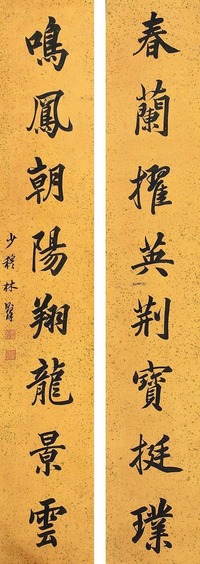 春蘭擢英荆寶挺璞
鳴鳳朝陽翔龍景雲
少穆林